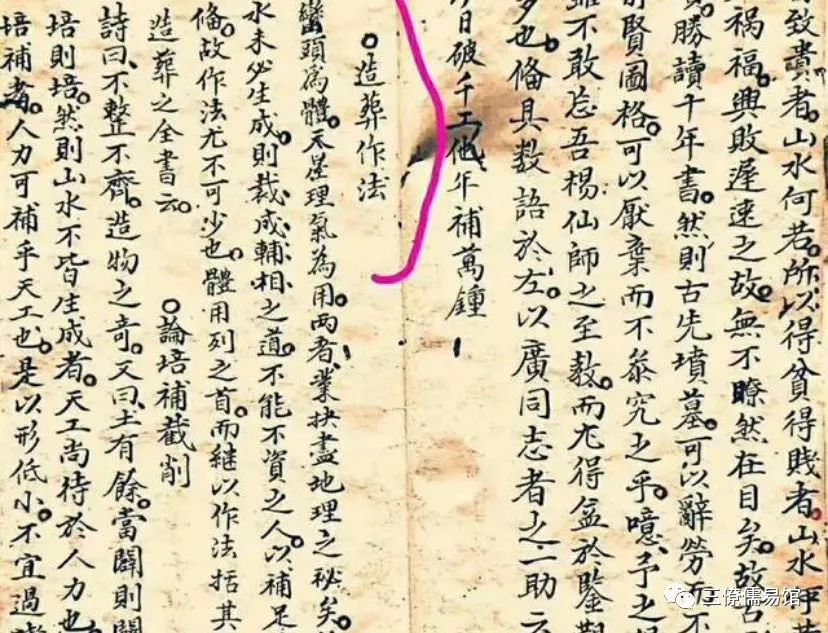 致貴者。山水何若。所以得貧得賤者。山水
禍福。興敗遲速之故。無不瞭然在目矣。故
勝讀千年書。然則古先墳墓。可以辭勞而不
前賢圖格。可以厭棄而不叅究之乎。噫。予之
雖不敢忘吾楊仙師之至教。而尤得益於鑒
多也。俻具数語於左。以廣同志者之一助云
日破千工他年補萬鍾
○造葬作法
巒頭為體。天星理氣為用。两者業抉盡地理之秘矣。
水未必生成。則裁成輔相之道。不能不資之人。以補足
俻。故作法尤不可少也。體用列之首。而継以作法括其
造葬之全書云。
○論培補截削
詩曰。不整不齊。造物之奇。又曰。土有餘。當闢則闢
培則培。然則山水不皆生成者。天工尚待於人力也
培補者。人力可補乎天工也。是以形低小。不宜過
三僚儒易馆